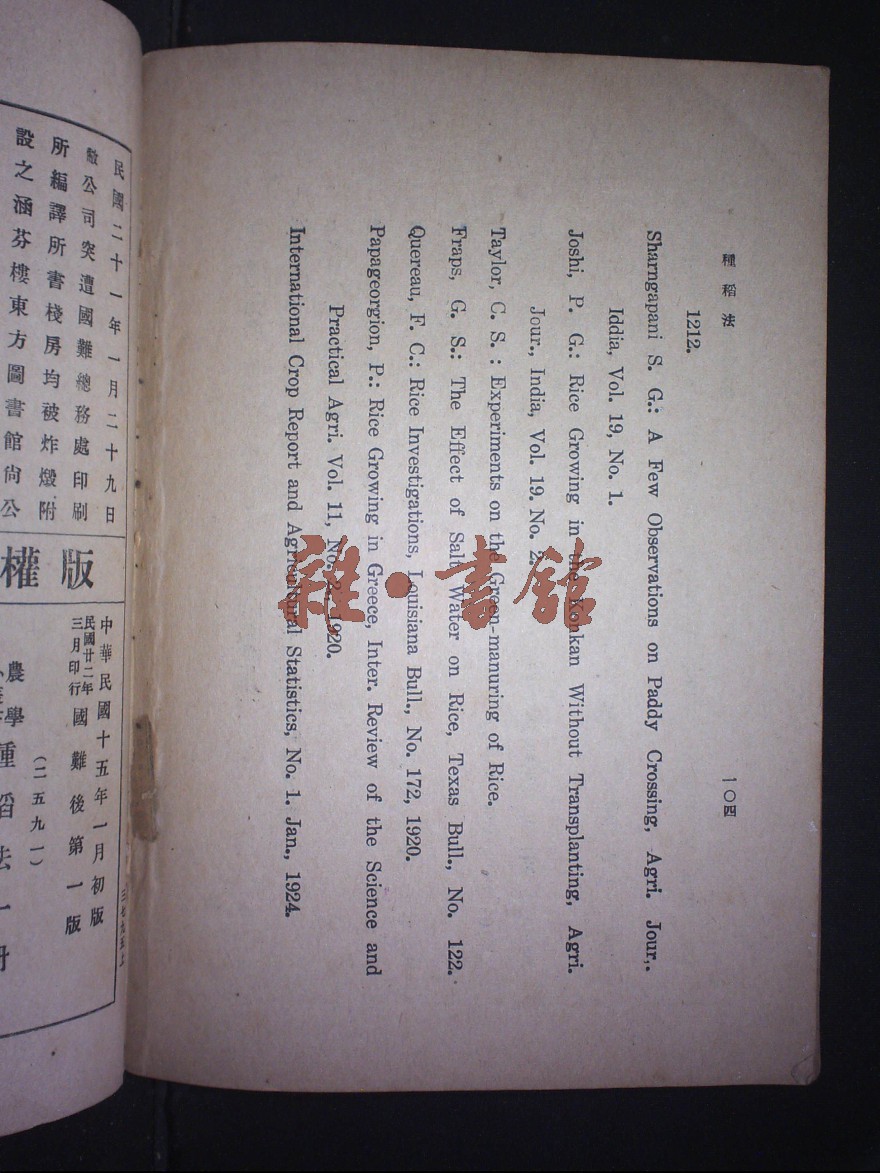 種稻法
一〇四
1212.
Sharngapani S. G.: A Few Observations on Paddy Crossing, Agri. Jour,.
Iddia, Vol. 19, No. 1.
Joshi, P. G.: Rice Growing in the Konkan Without Transplanting, Agri.
Jour., India, Vol. 19. No. 2.
Taylor, C. S. : Experiments on the Green-manuring of Rice.
Fraps, G. S.: The Effect of Salt Water on Rice, Texas Bull., No. 122.
Quereau, F. C.: Rice Investigations, Louisiana Bull., No. 172, 1920.
Papageorgion, P.: Rice Growing in Greece, Inter. Review of the Science and
Practical Agri. Vol. 11, No. 2, 1920.
International Crop Report and Agricultural Statistics, No. 1. Jan., 1924.
雜·書館
民國二十一年一月二十九日
敝公司突遭國難總務處印刷
所編譯所書棧房均被炸燬附
設之涵芬樓東方圖書館尙公
版權
中華民國十五年一月初版
民國廿二年三月印行
國難後第一版
(二五九一)
農學
種稻法一册